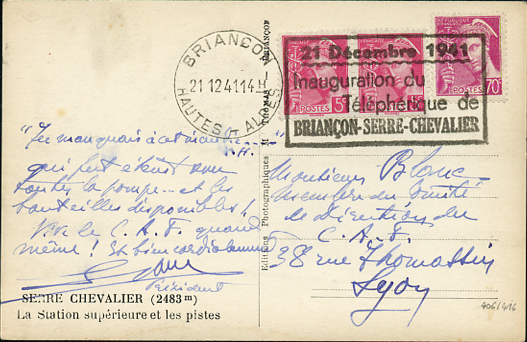 BRIANÇON
21 12 41 14H
HAUTES-ALPES
21 Décembre 1941
Inauguration du
Téléphérique de
BRIANÇON-SERRE-CHEVALIER
POSTES
POSTES
POSTES 70c
"Tu manquais à cette
V.H.
qui fut étant
toutes la pompe... et les
bouteilles disponibles!
Vive le C. A. F. quand
même! Et bien cordialement
Président
SERRE CHEVALIER (2483 m)
La Station supérieure et les pistes
Editions Photographiques
BRIANÇON
Monsieur Blanc
Membre du Comité
de direction du
C. A. F.
38 rue Thomassin
Lyon
406/416